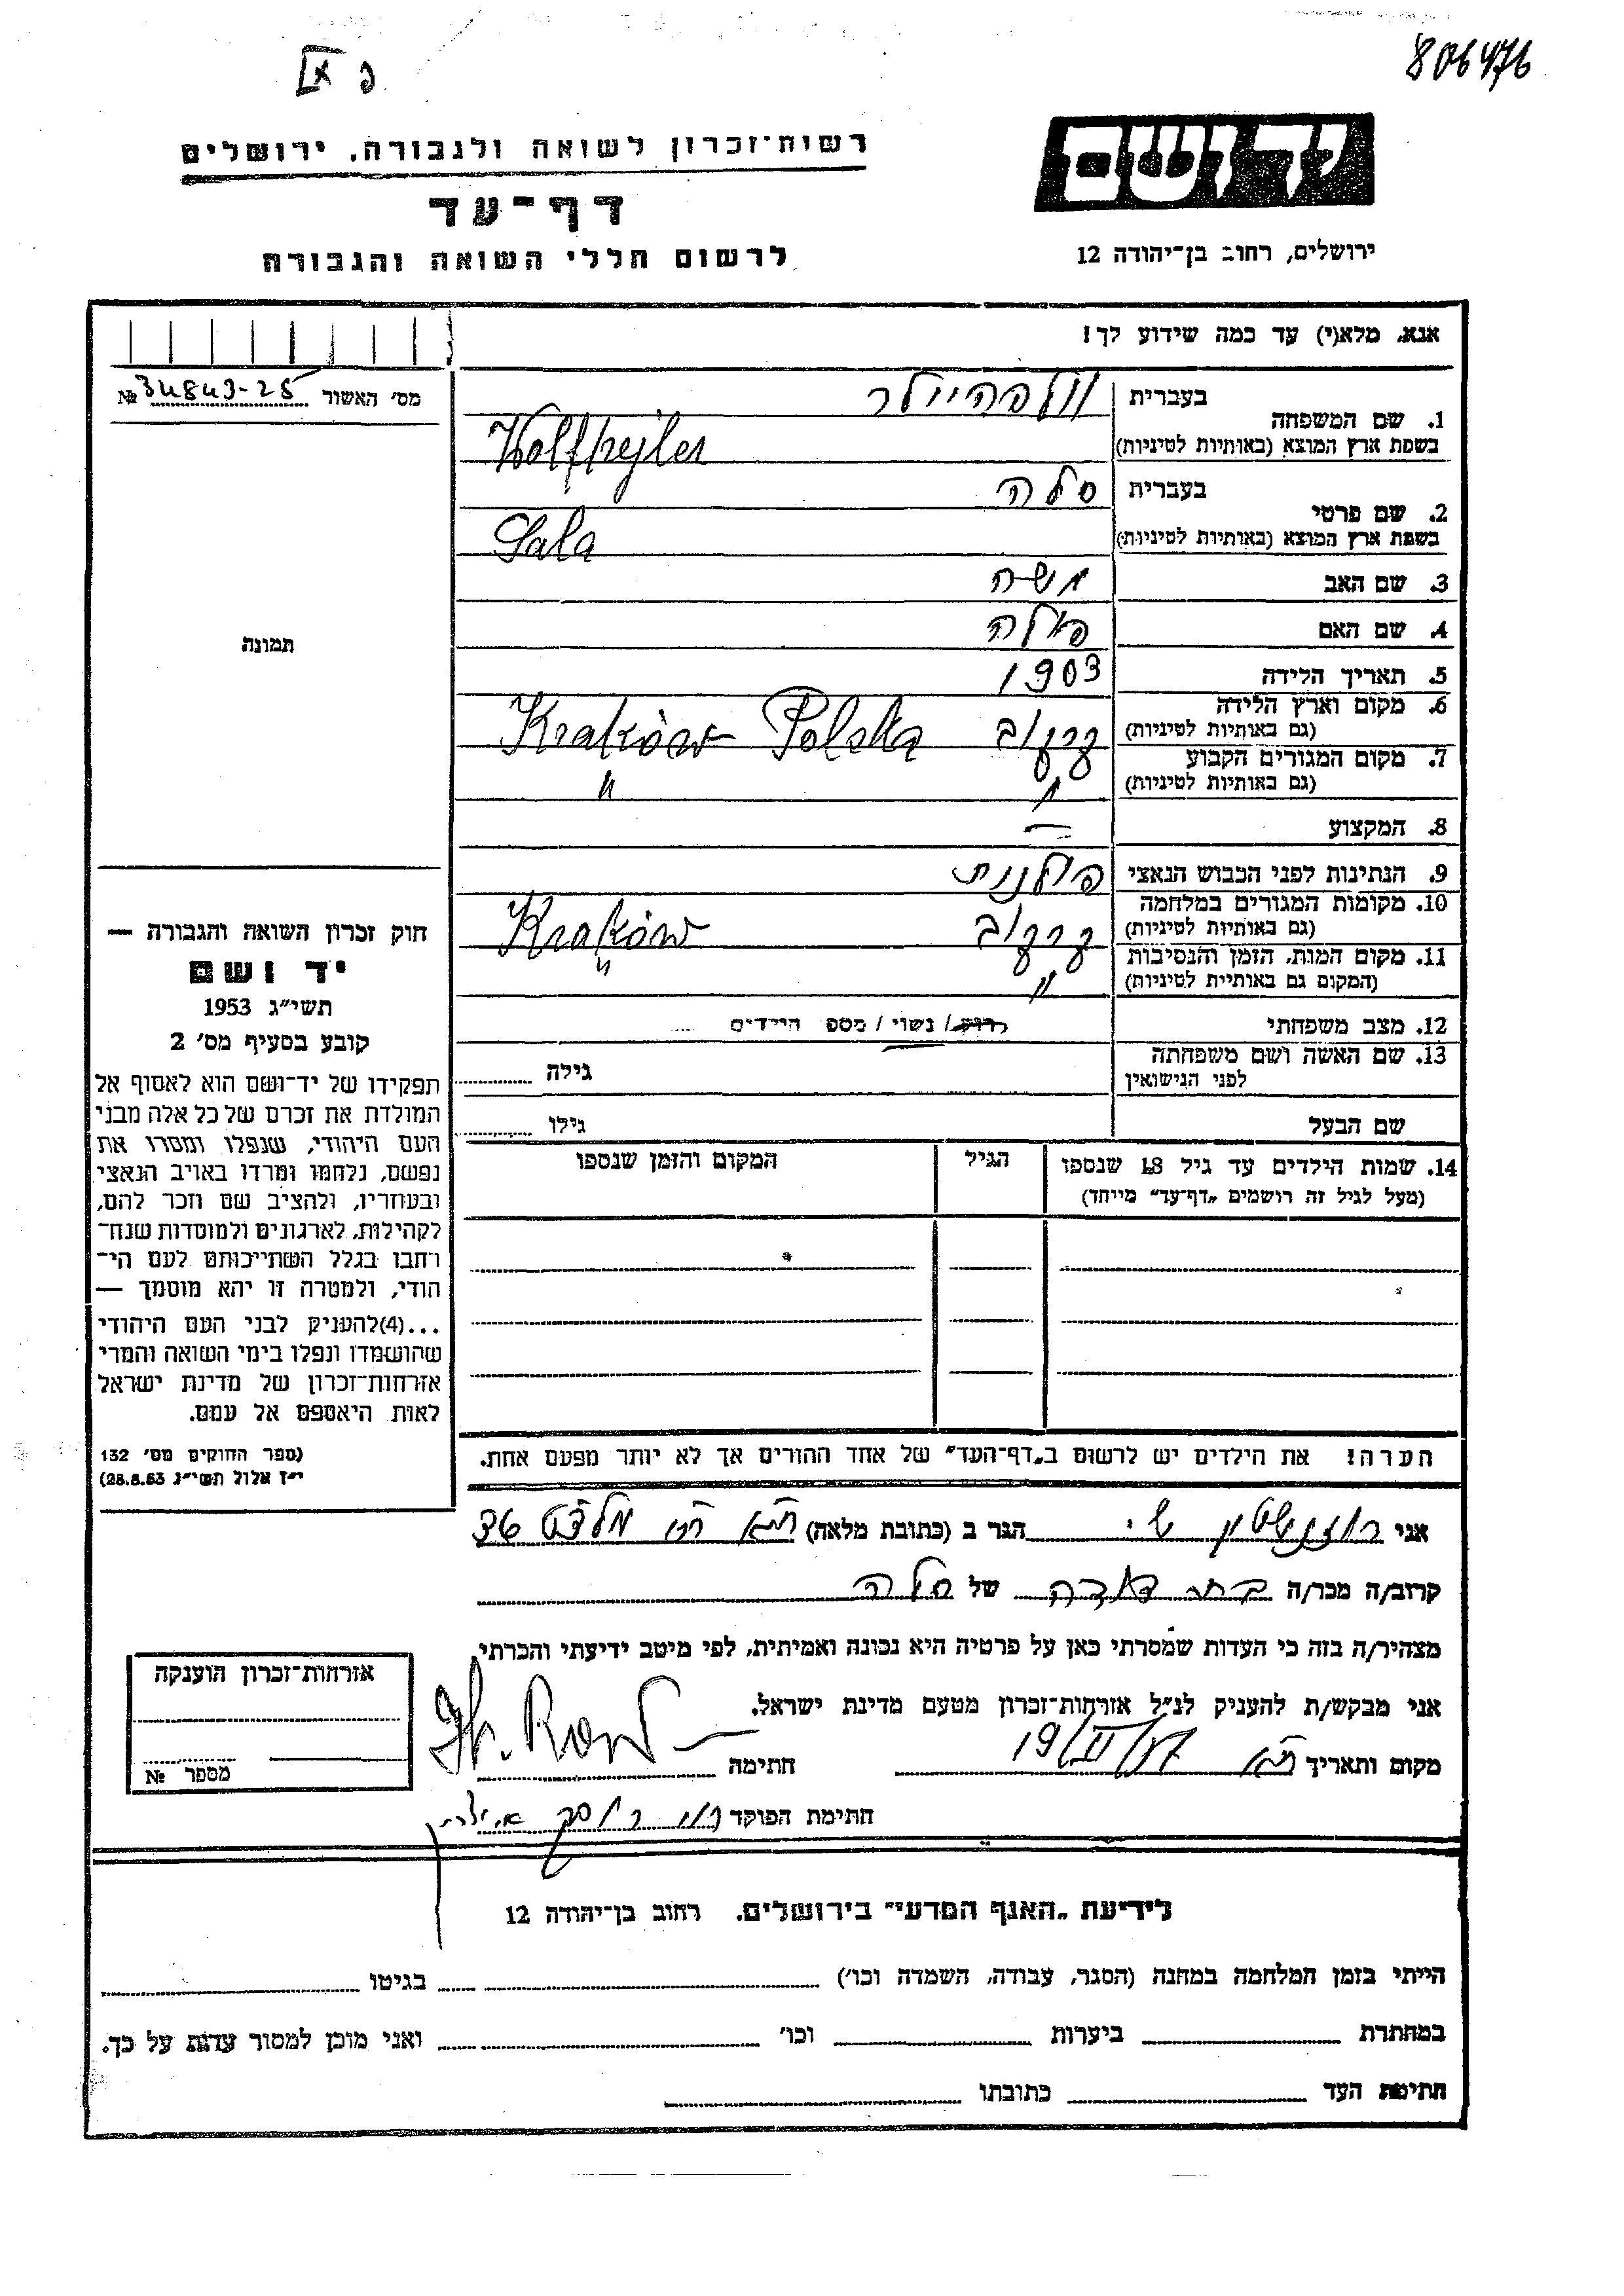 806476
פ אX
ידושם
ירושלים, רחוב בן־יהודה 12
רשות־זכרון לשואה ולגבורה. ירושלים
דף־עד
לרשום חללי השואה והגבורה
אנא, מלא(י) עד כמה שידוע לך!
מס׳ האשור № 34843-25
1. שם המשפחה
בעברית וולפהיילר
בשפת ארץ המוצא (באותיות לטיניות) Wolfhejler
2. שם פרטי
בעברית סלה
בשפת ארץ המוצא (באותיות לטיניות) Sala
3. שם האב משה
4. שם האם
5. תאריך הלידה 1903
6. מקום וארץ הלידה
(גם באותיות לטיניות) קרקוב Kraków Polska
7. מקום המגורים הקבוע
(גם באותיות לטיניות) " "
8. המקצוע —
9. הנתינות לפני הכבוש הנאצי פולנית
10. מקומות המגורים במלחמה
(גם באותיות לטיניות) קרקוב Kraków
11. מקום המות, הזמן והנסיבות
(המקום גם באותיית לטיניות) " "
12. מצב משפחתי רווק / נשוי / מספ הילדים ....
13. שם האשה ושם משפחתה
לפני הנישואין גילה
שם הבעל גילו
14. שמות הילדים עד גיל 18 שנספו
(מעל לגיל זה רושמים „דף־עד״ מייחד)
הגיל
המקום והזמן שנספו
הערה! את הילדים יש לרשום ב„דף־העד״ של אחד ההורים אך לא יותר מפעם אחת.
תמונה
חוק זכרון השואה והגבורה —
יד ושם
תשי״ג 1953
קובע בסעיף מס׳ 2
תפקידו של יד־ושם הוא לאסוף אל
המולדת את זכרם של כל אלה מבני
העם היהודי, שנפלו ומסרו את
נפשם, נלחמו ומרדו באויב הנאצי
ובעוזריו, ולהציב שם וזכר להם,
לקהילות, לארגונים ולמוסדות שנח־
רחבו בגלל השתייכותם לעם הי־
הודי, ולמטרה זו יהא מוסמך —
...(4)להעניק לבני העם היהודי
שהושמדו ונפלו בימי השואה והמרי
אזרחות־זכרון של מדינת ישראל
לאות היאספם אל עמם.
(ספר החוקים מס׳ 132
י״ז אלול תשי״ג 28.8.53)
אני רוזנשטיין הגר ב (כתובת מלאה) ת״א
קרוב/ה מכר/ה בת דודה של סלה
מצהיר/ה בזה כי העדות שמסרתי כאן על פרטיה היא נכונה ואמיתית, לפי מיטב ידיעתי והכרתי.
אני מבקש/ת להעניק לנ״ל אזרחות־זכרון מטעם מדינת ישראל.
מקום ותאריך ת״א 19/II/57 חתימה
חתימת הפוקד
אזרחות־זכרון הוענקה
מספר №
לידיעת „האגף המדעי״ בירושלים. רחוב בן־יהודה 12
הייתי בזמן המלחמה במחנה (הסגר, עבודה, השמדה וכו׳) בגיטו
במחתרת ביערות וכו׳ ואני מוכן למסור עדות על כך.
חתימת העד כתובתו